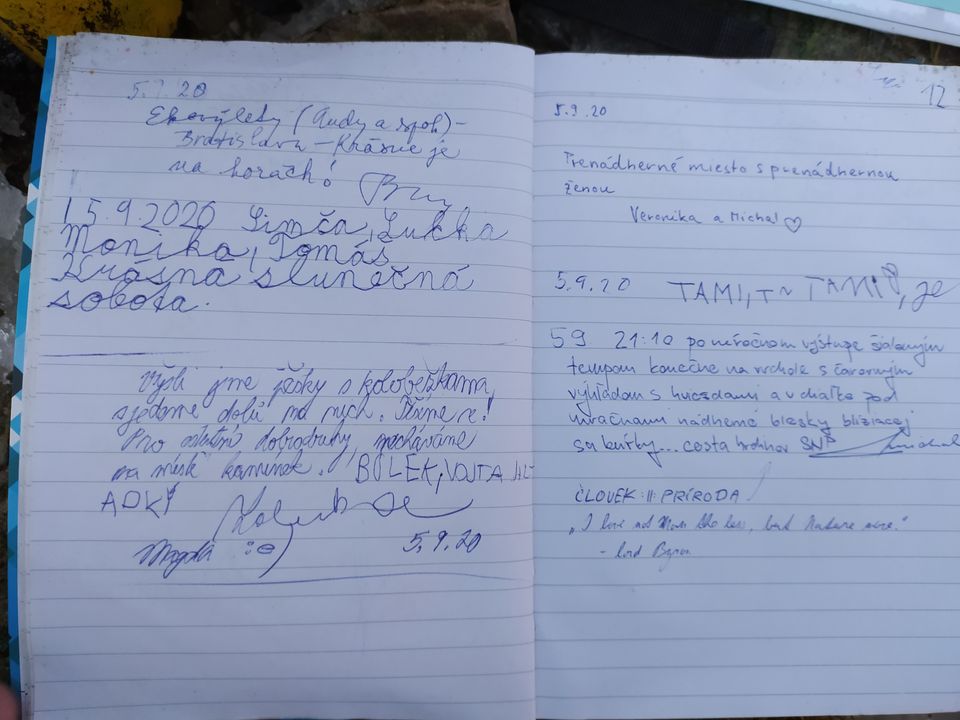 5.9.20
Ekovýlety (Andy a spol.) -
Bratislava - Krásne je
na horách!
15.9.2020 Simča, Lukka
Monika, Tomáš
Krásná slunečná
sobota.
Vyšli jme pěšky s koloběžkama,
sjedeme dolů na nich. Těšíme se!
Pro ostatní dobrodruhy, necháváme
na místě kamínek. BOLEK, VOJTA
ADKY
Magda :)
5.9.20
12
5.9.20
Prenádherné miesto s prenádhernou
ženou
Veronika a Michal ♡
5.9.20 TAMI, T~ TAMI, je
5 9 21:10 po náročnom výstupe šialeným
tempom konečne na vrchole s čarovným
výhľadom s hviezdami a v diaľke pod
mračnami nádherné blesky blížiacej
sa búrky... cesta hrdinov SNP
ČLOVEK :||: PRÍRODA
„I love not Man the less, but Nature more."
- lord Byron